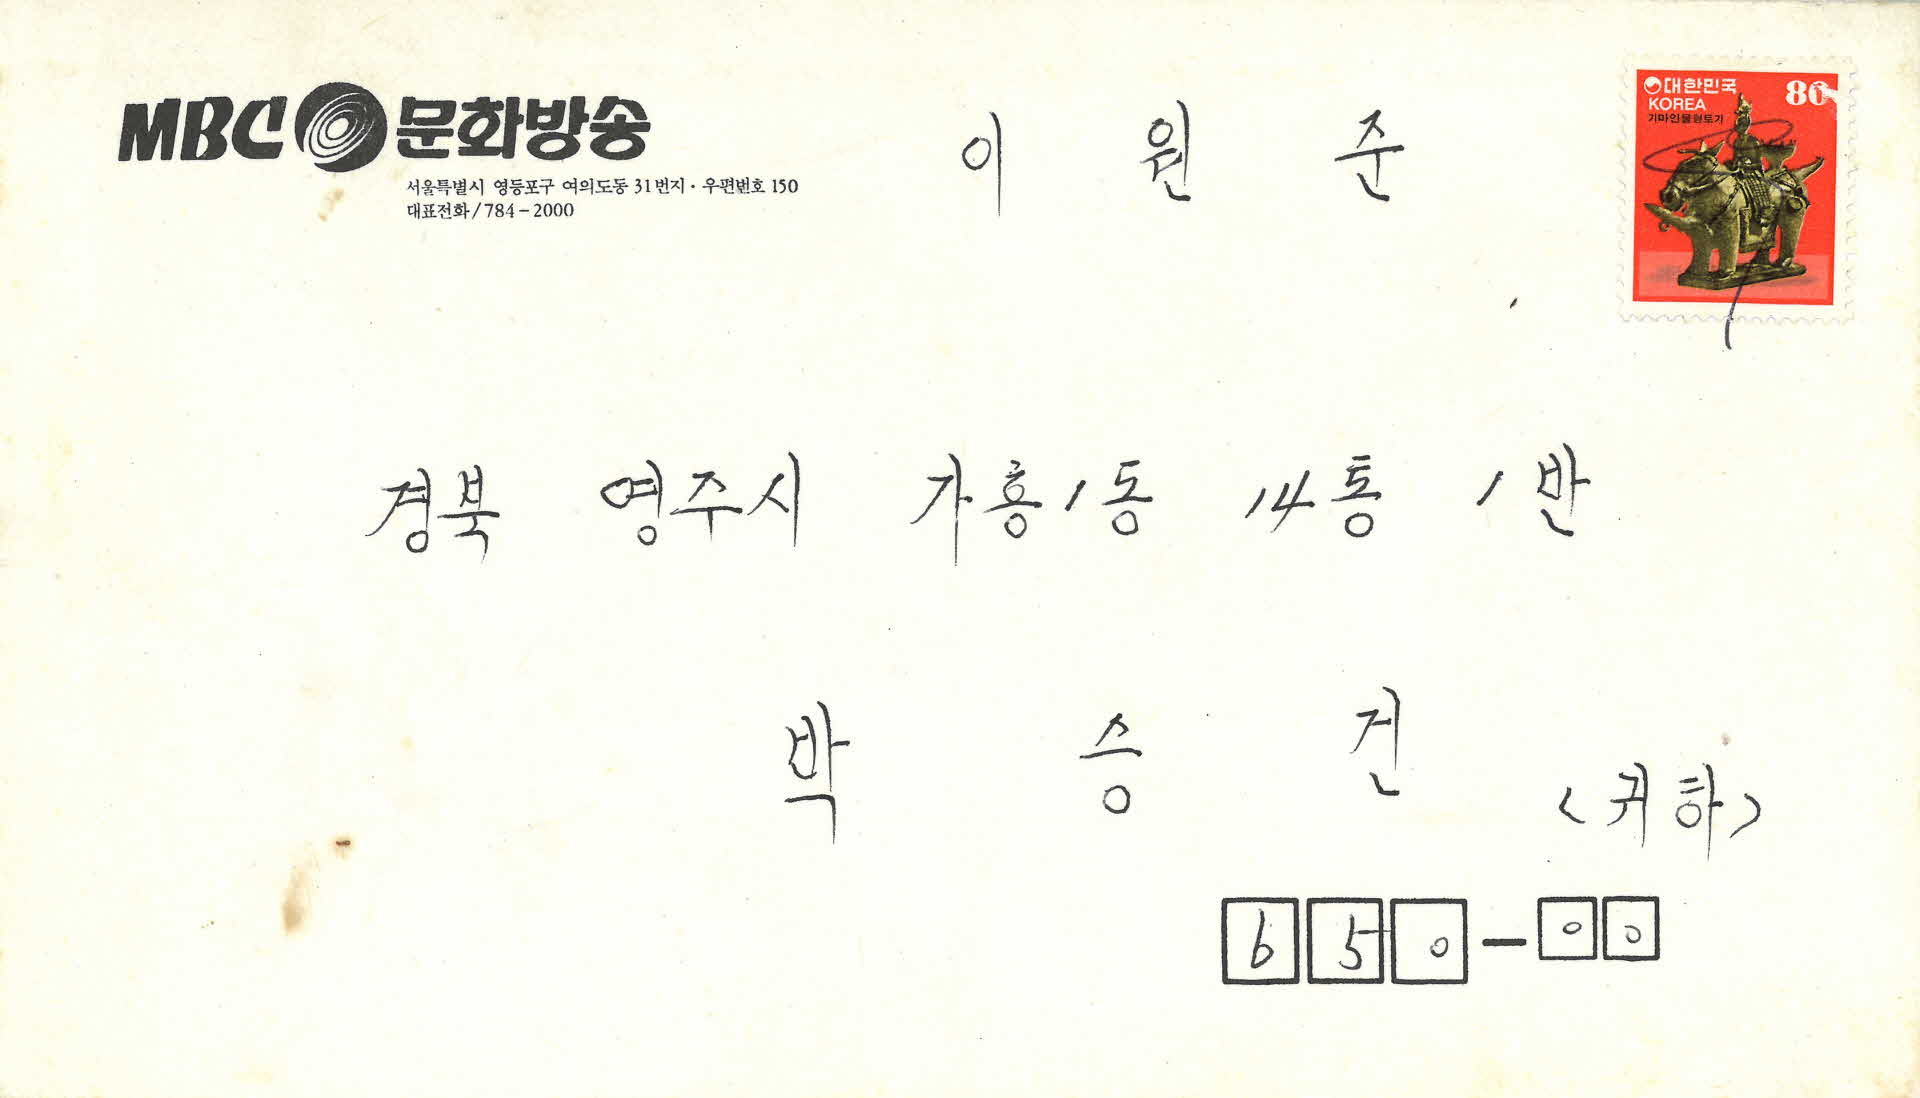 MBC 문화방송
서울특별시 영등포구 여의도동 31번지 · 우편번호 150
대표전화/784-2000
이 원 준
대한민국 80
KOREA
기마인물형토기
경북 영주시 가흥1동 14통 1반
박 승 건 <귀하>
650-00